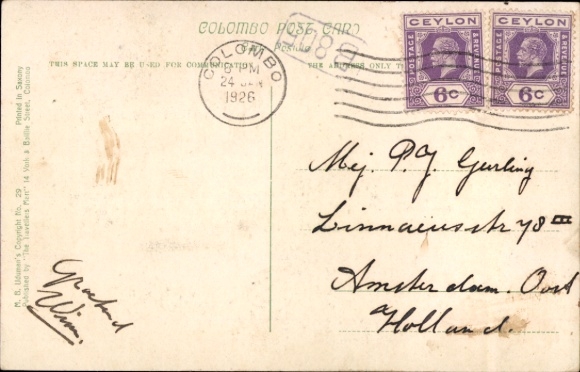 COLOMBO POST CARD
THIS SPACE MAY BE USED FOR COMMUNICATION.
THE ADDRESS ONLY T
COLOMBO
6 PM
24 JAN
1926
CEYLON
POSTAGE
& REVENUE
6c
CEYLON
POSTAGE
& REVENUE
6c
Mej. P.J. Gerling
Linnaeusstr 78 III
Amsterdam. Oost
Holland.
Wim.
M. B. Uduman's Copyright No. 29 Printed in Saxony
Published by "The Travellers Mart" 14 York & Baillie Street, Colombo